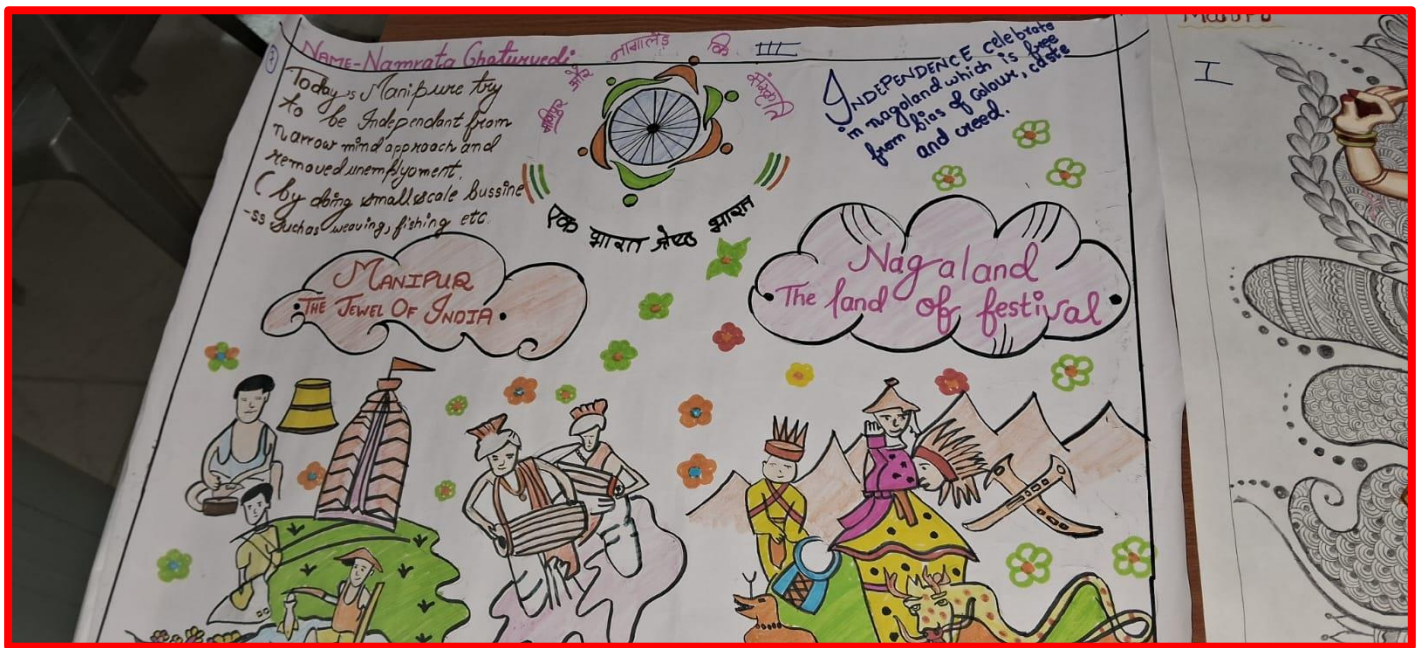 NAME-Namrata Chaturvedi
मणिपुर और नागालैंड कि संस्कृति
III
Today,s Manipure try
to be Independant from
narrow mind approach and
removed unemplyoment.
( by doing small scale bussine
-ss Suchas weaving, fishing etc.
INDEPENDENCE celebrate
in nagaland which is free
from bias of colour, caste
and creed.
एक भारत श्रेष्ठ भारत
MANIPUR
THE JEWEL OF INDIA
Nagaland
The land of festival
I